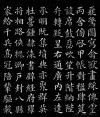 飛驚圖寫禽獸畫綵仙靈
丙舍傍啓甲帳對楹肆筵
設席鼓瑟吹笙升階納陛
弁轉疑星右通廣內左達
承明既集墳典亦聚群英
杜稾鍾隸漆書壁經府羅
將相路俠槐卿戶封八縣
家給千兵高冠陪輦驅轂